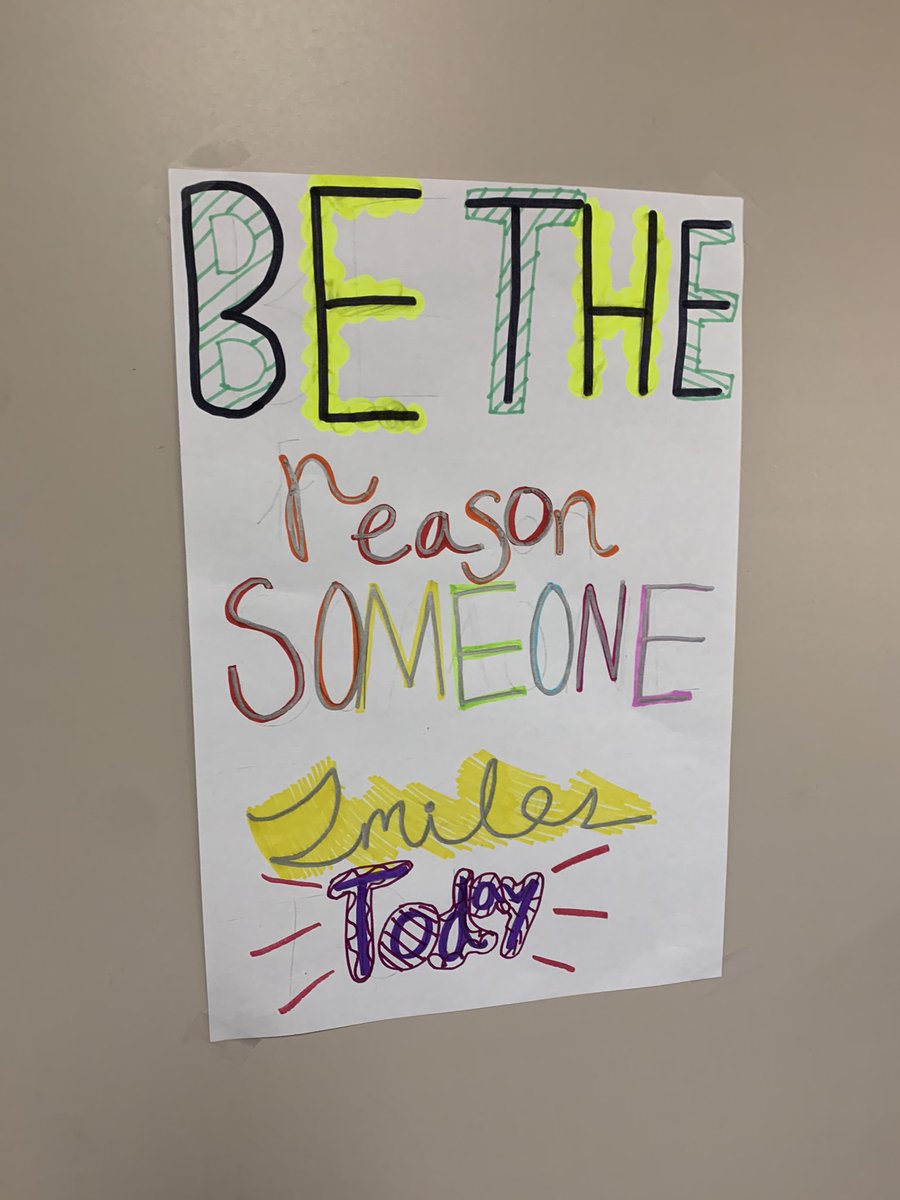 BE THE
reason
SOMEONE
Smiles
Today